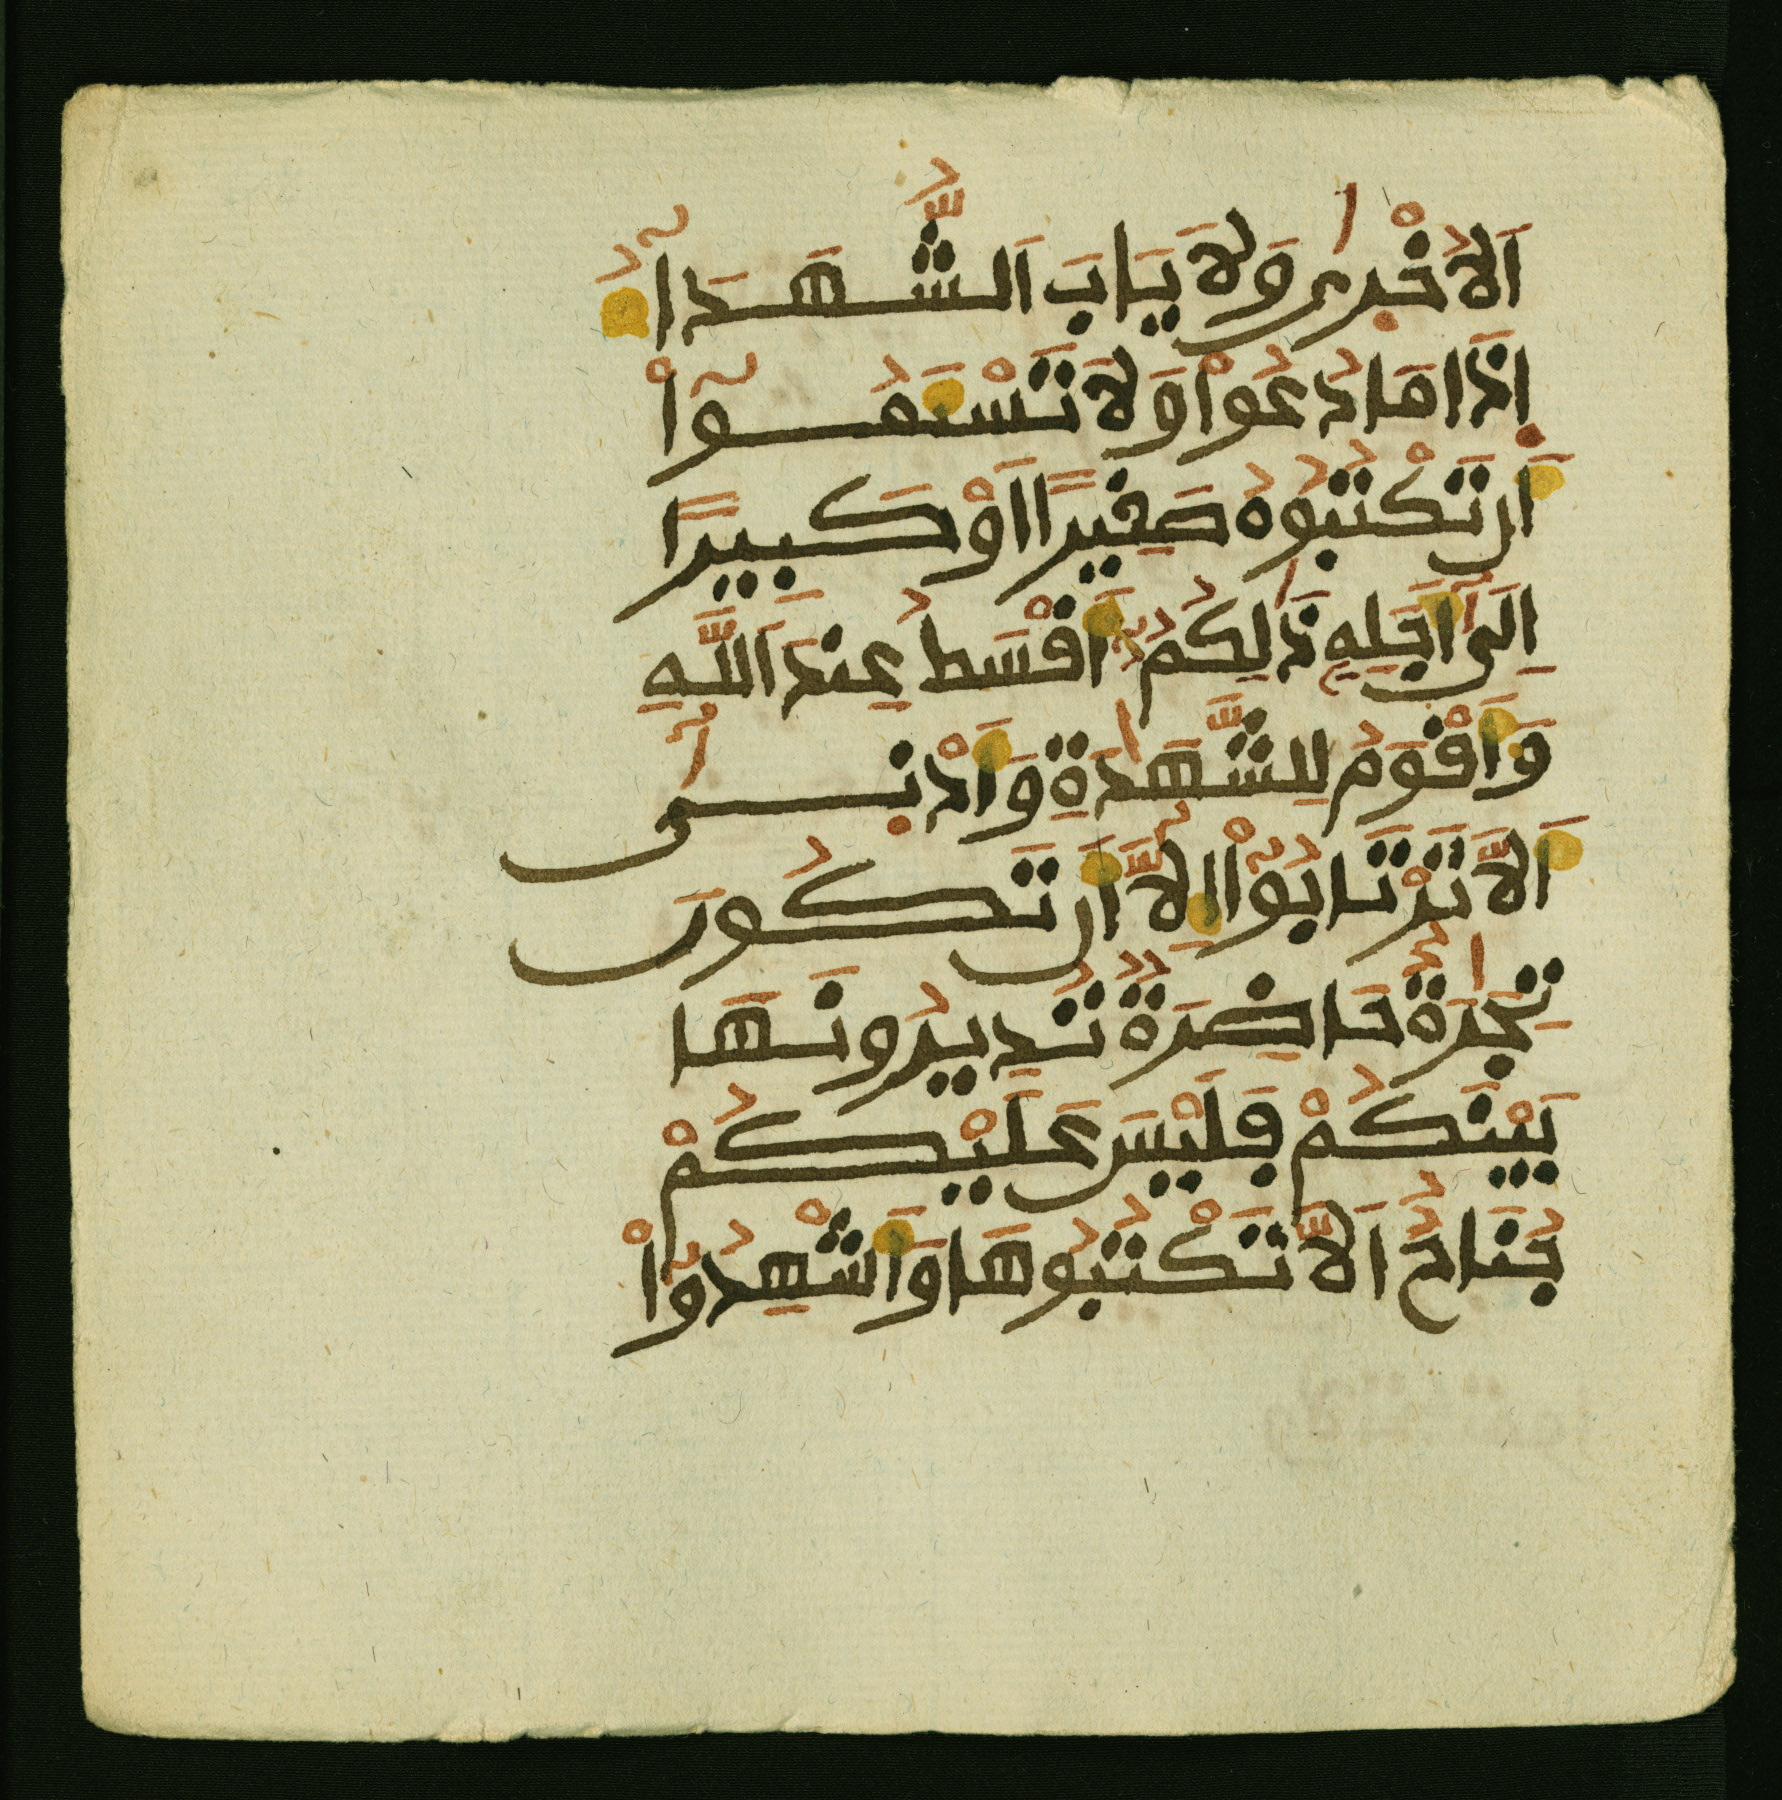 اَلُاخْرٜى وَلَا يَابَ اَلشُّهَدَآءُ
اِذَا مَا دُعُواْ وَلَا تَسْـَٔمُوٓاْ
أَن تَكْتُبُوهُ صَغِيرًا اَوْ كَبِيرًا
اِلَىٰٓ أَجَلِهِۦ ذَٰلِكُمُۥٓ أَقْسَطُ عِندَ اَللَّهِ
وَأَقْوَمُ لِلشَّهَٰدَةِ وَأَدْنٜىٰٓ
أَلَّا تَرْتَابُوٓاْ إِلَّآ أَن تَكُونَ
تِجَٰرَةٌ حَاضِرَةٌ تُدِيرُونَهَا
بَيْنَكُمْ فَلَيْسَ عَلَيْكُمْ
جُنَاحٌ اَلَّا تَكْتُبُوهَا وَأَشْهِدُوٓاْ